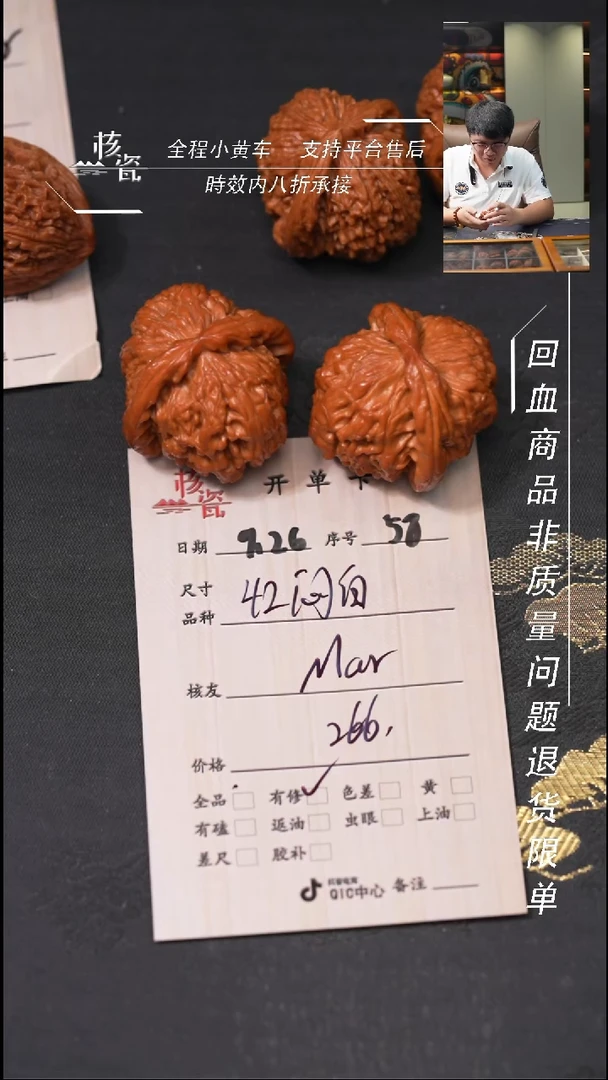 核瓷
全程小黄车 支持平台售后
時效内八折承接
回血商品非质量问题退货限单
核瓷 开单卡
日期 9.26 序号 58
尺寸
品种 42闷白
核友 Mar
266.
价格
全品 有修 ✓ 色差 黄
有磕 返油 虫眼 上油
差尺 胶补
抖音电商
QIC中心 备注